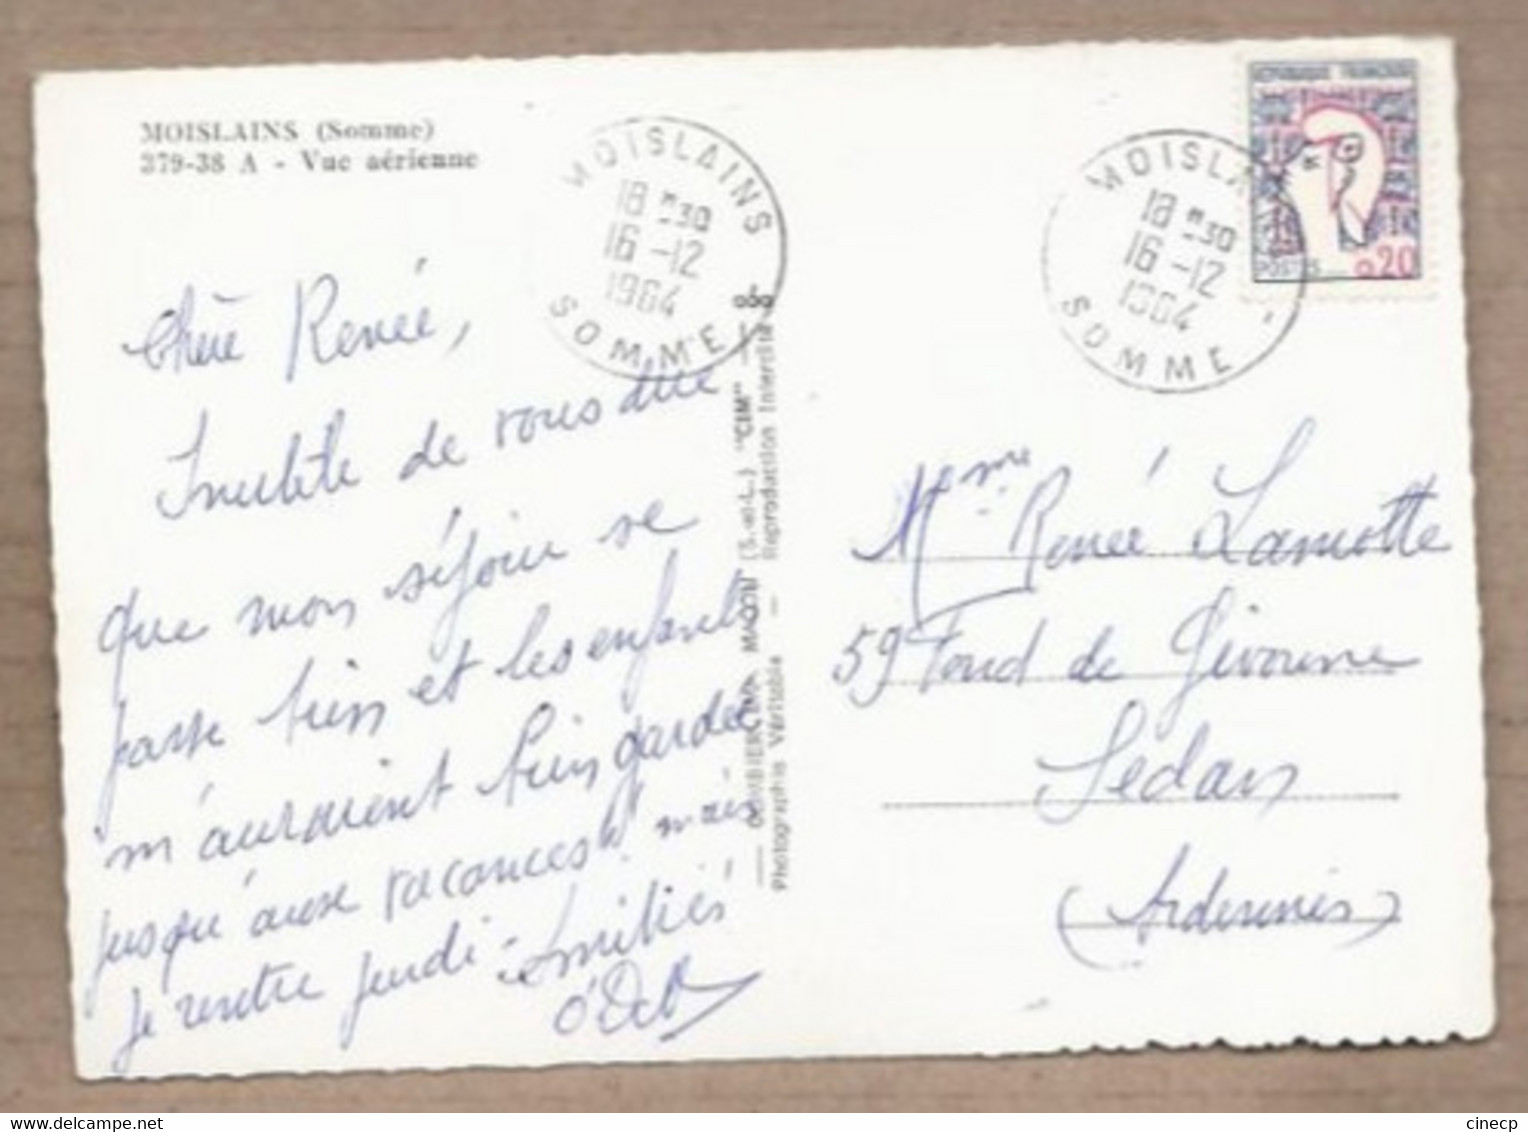 MOISLAINS (Somme)
379-38 A - Vue aérienne
MOISLAINS
18 H30
16-12
1964
SOMME
MOISLA
18 H30
16-12
1964
SOMME
REPUBLIQUE FRANÇAISE
POSTES 0,20
Chère Renée,
Inutile de vous dire
que mon séjour se
passe bien et les enfants
m'auraient bien gardée
jusqu'aux vacances" mais
je rentre jeudi - Amitiés
COMBIER IMP. MACON (S.-et-L.) "CIM"
Photographie Véritable — Reproduction Interdite
Mme Renée Lamotte
59 Fond de Givonne
Sedan
(Ardennes)
cinecp